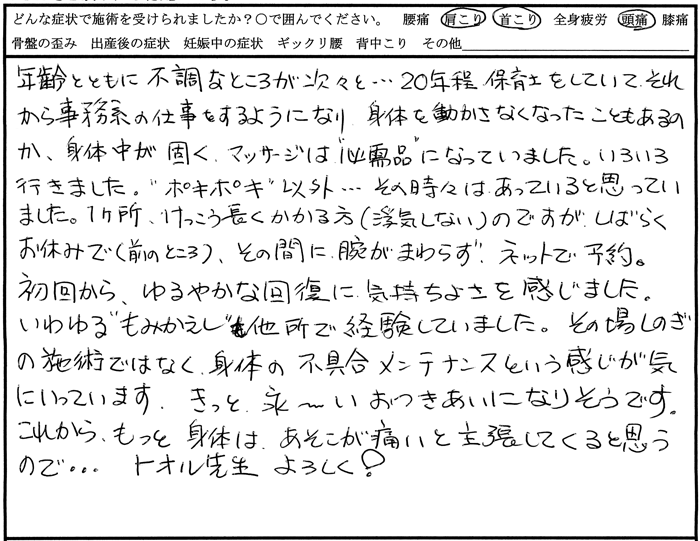 どんな症状で施術を受けられましたか？○で囲んでください。 腰痛 肩こり 首こり 全身疲労 頭痛 膝痛
骨盤の歪み 出産後の症状 妊娠中の症状 ギックリ腰 背中こり その他
年齢とともに不調なところが次々と…20年程、保育士をしていて、それ
から事務系の仕事をするようになり、身体を動かさなくなったこともあるの
か、身体中が固く、マッサージは"必需品"になっていました。いろいろ
行きました。"ポキポキ"以外…その時々は、あっていると思ってい
ました。1ヶ所、けっこう長くかかる方（浮気しない）のですが、しばらく
お休みで（前のところ）、その間に、腕がまわらず、ネットで予約。
初回から、ゆるやかな回復に気持ちよさを感じました。
いわゆる"もみかえし"も他所で経験していました。その場しのぎ
の施術ではなく、身体の不具合メンテナンスという感じが気
にいっています。きっと、永〜いおつきあいになりそうです。
これから、もっと身体は、あそこが痛いと主張してくると思う
ので… トオル先生 よろしく!